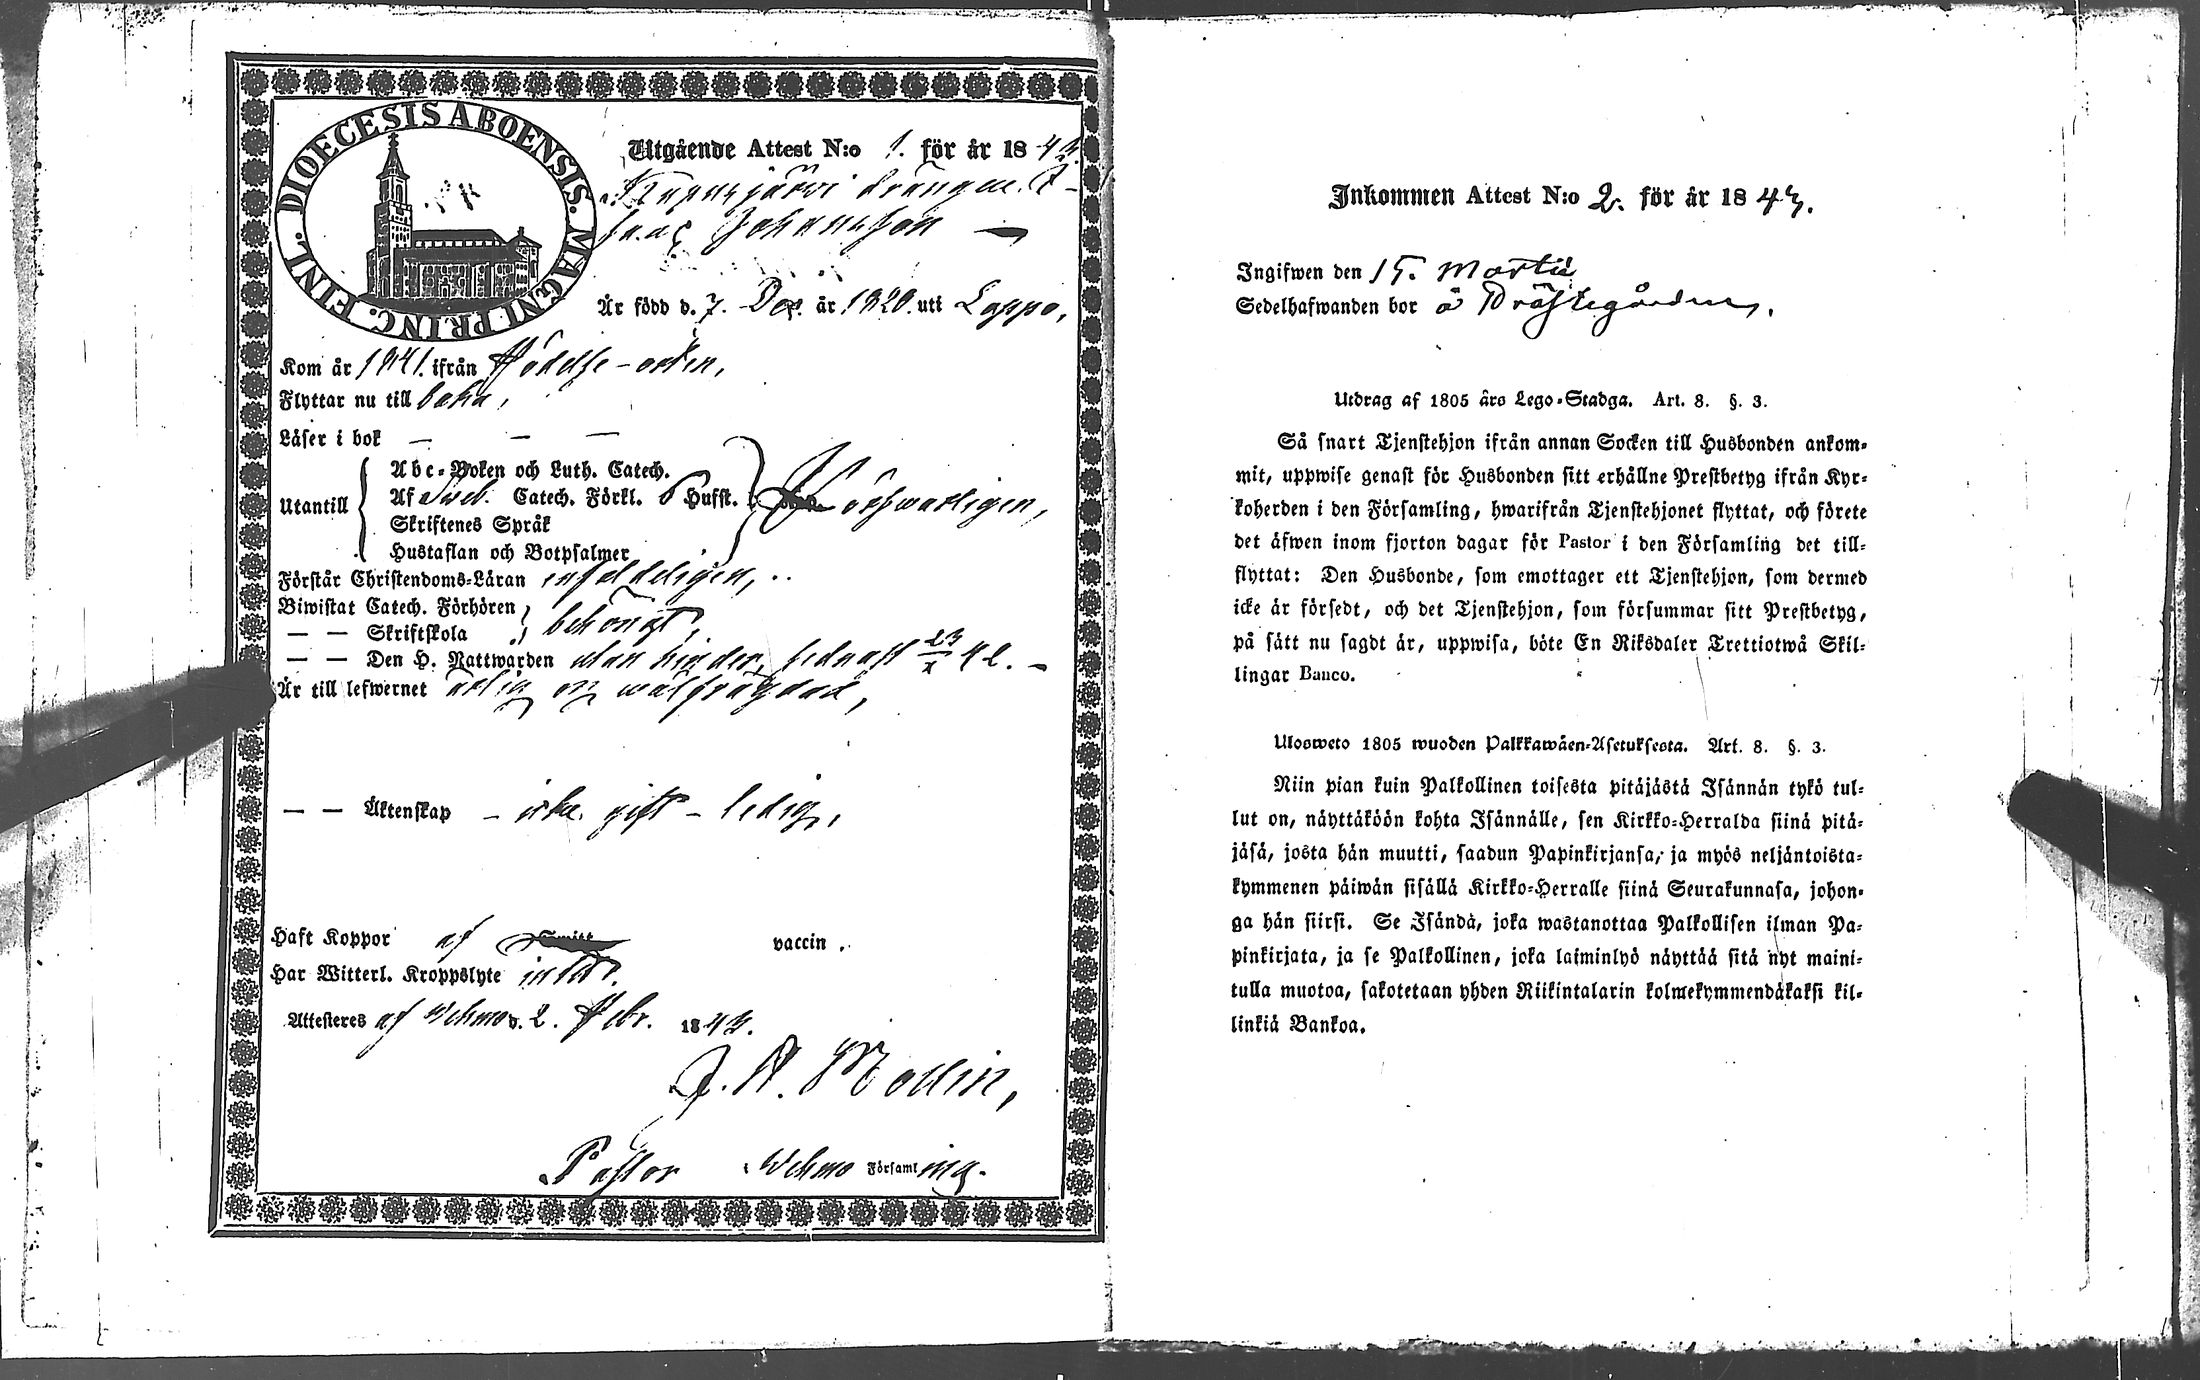 DIOECESIS ABOENSIS. MAGNI PRINC. FINL.
Utgående Attest N:o 1. för år 1843.
drängen I-
saac Johansson —
Är född d. 7. Dec. år 1820. uti Loppo,
Kom år 1841. ifrån födelse-orten,
Flyttar nu till baka,
Läser i bok — — —
Utantill
Abc-Boken och Luth. Catech.
Af Sveb. Catech. Förkl. 6 Hufst. försvarligen,
Skriftenes Språk
Hustaflan och Botpsalmer
Förstår Christendoms-Läran enfaldeligen,
Biwistat Catech. Förhören
— — Skriftskola
behörigt,
— — Den H. Nattwarden utan hinder, sednast 23/x 42. –
Är till lefwernet ärlig och wälfrägdad,
— — Äktenskap – icke gift – ledig,
Haft Koppor af vaccin.
Har Witterl. Kroppslyte intet.
Attesteres af Wehmo d. 2. Febr. 1843.
Mollin,
Pastor i Wehmo Församling.
Inkommen Attest N:o 2. för år 1843.
Ingifwen den 15. Martii
Sedelhafwanden bor å Prästegården.
Utdrag af 1805 års Lego-Stadga. Art. 8. §. 3.
Så snart Tjenstehjon ifrån annan Socken till Husbonden ankom-
mit, uppwise genast för Husbonden sitt erhållne Prestbetyg ifrån Kyr-
koherden i den Församling, hwarifrån Tjenstehjonet flyttat, och förete
det äfwen inom fjorton dagar för Pastor i den Församling det till-
flyttat: Den Husbonde, som emottager ett Tjenstehjon, som dermed
icke är försedt, och det Tjenstehjon, som försummar sitt Prestbetyg,
på sätt nu sagdt är, uppwisa, böte En Riksdaler Trettiotwå Skil-
lingar Banco.
Ulosweto 1805 wuoden Palkkawäen-Asetuksesta. Art. 8. §. 3.
Niin pian kuin Palkollinen toisesta pitäjästä Isännän tykö tul-
lut on, näyttäköön kohta Isännälle, sen Kirkko-Herralda siinä pitä-
jäsä, josta hän muutti, saadun Papinkirjansa, ja myös neljäntoista-
kymmenen päiwän sisällä Kirkko-Herralle siinä Seurakunnasa, johon-
ga hän siirsi. Se Isändä, joka wastanottaa Palkollisen ilman Pa-
pinkirjata, ja se Palkollinen, joka laiminlyö näyttää sitä nyt maini-
tulla muotoa, sakotetaan yhden Riikintalarin kolmekymmendäkaksi kil-
linkiä Bankoa.